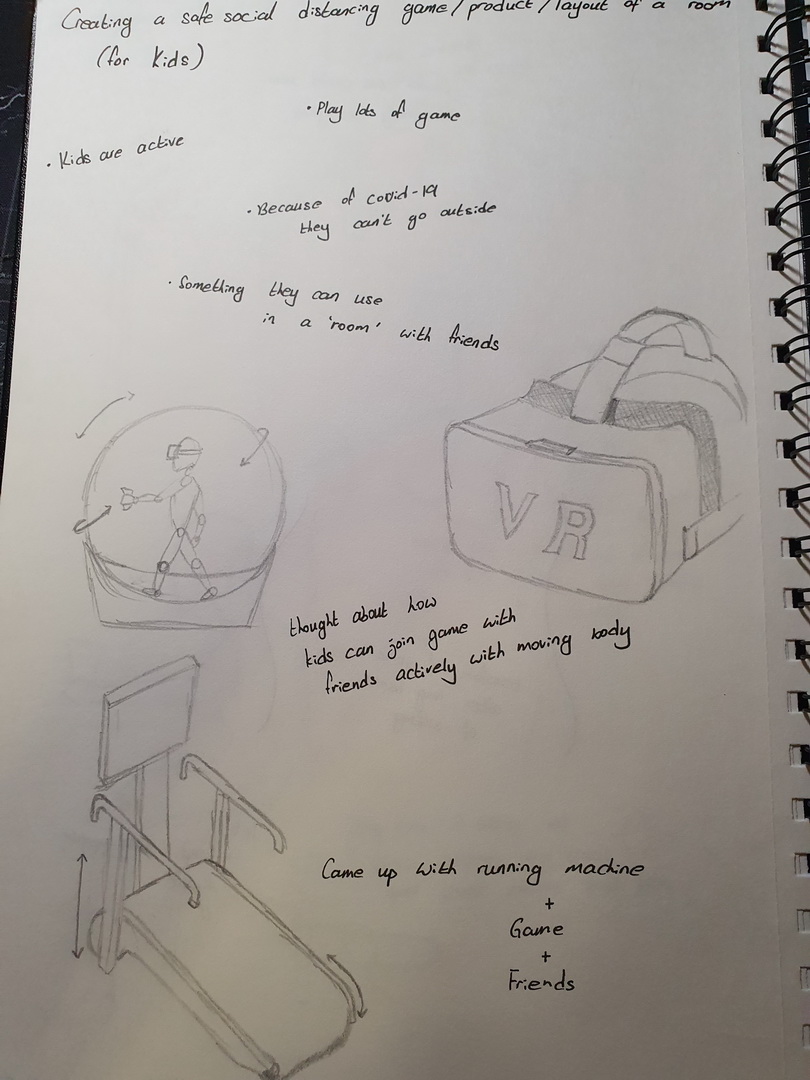 Creating a safe social distancing game/product/layout of a room
(for kids)
• Play lots of game
• Kids are active
• Because of covid-19
they can't go outside
• Something they can use
in a 'room' with friends
VR
thought about how
kids can join game with
friends actively with moving body
Came up with running machine
+
Game
+
Friends